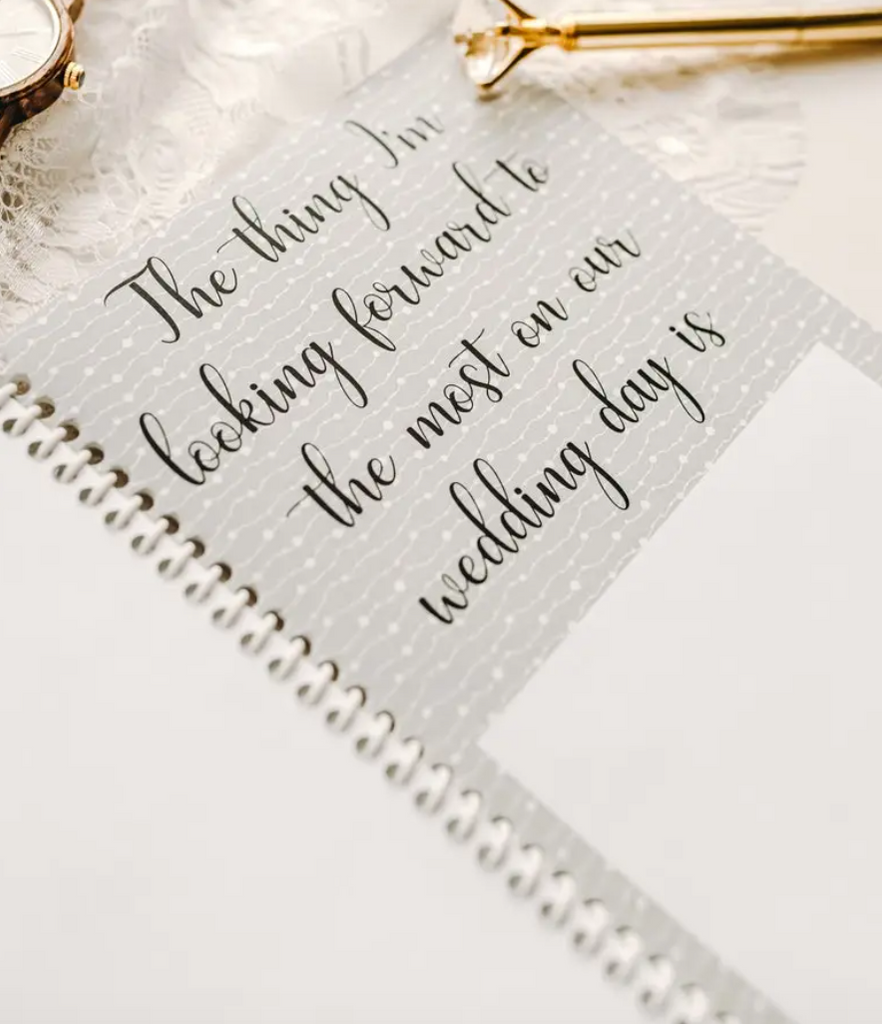 The thing I'm
looking forward to
the most on our
wedding day is